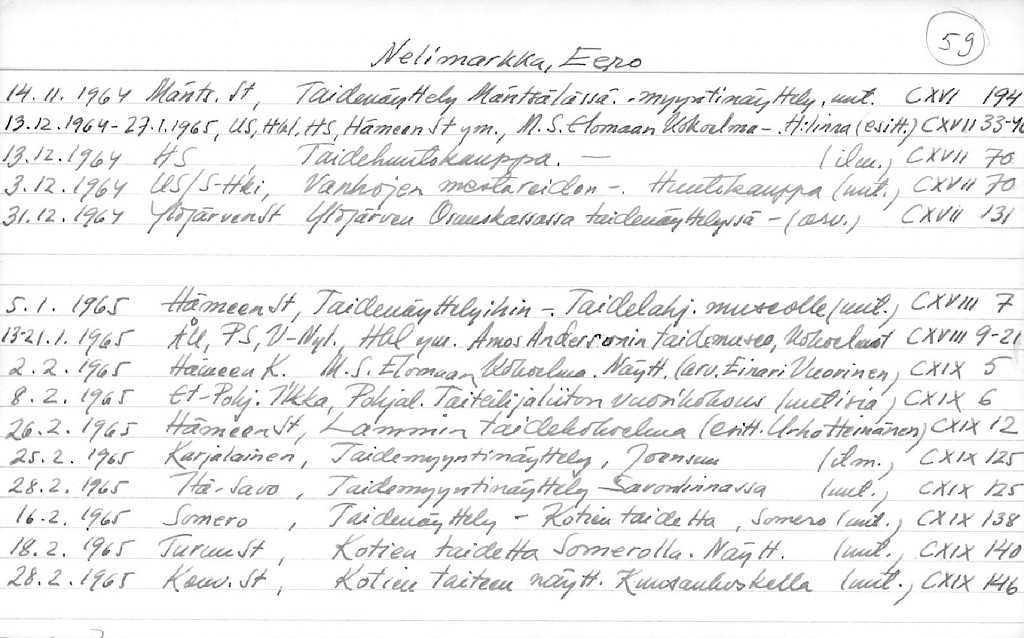 59
Nelimarkka, Eero
14.11.1964 Mänts. St, Taidenäyttely Mäntsälässä. -myyntinäyttely. uut. CXVI 194
13.12.1964-27.1.1965, US, Hbl, HS, Hämeen St ym., M.S. Elomaan Kokoelma -. H:linna (esitt.) CXVII 33-40
13.12.1964 HS, Taidehuutokauppa. - (ilm.) CXVII 70
3.12.1964 US/S-Hki, Vanhojen mestareiden -. Huutokauppa (uut.) CXVII 70
31.12.1964 Ylöjärven St Ylöjärven Osuuskassassa taidenäyttelyssä - (arv.) CXVII 131
5.1.1965 Hämeen St, Taidenäyttelyihin -. Taidelahj. museolle (uut.) CXVIII 7
13-21.1.1965 ÅU, PS, V-Nyl., Hbl ym. Amos Andersonin taidemuseo, Kokoelmat CXVIII 9-21
2.2.1965 Hämeen K. M.S. Elomaan Kokoelma. Näytt. (arv. Einari Vuorinen) CXIX 5
8.2.1965 Et-Pohj. Ilkka, Pohjal. Taiteilijaliiton vuosikokous (uutisia) CXIX 6
26.2.1965 Hämeen St, Lammin taidekokoelma (esitt. Urho Heinänen) CXIX 12
25.2.1965 Karjalainen, Taidemyyntinäyttely, Joensuu (ilm.) CXIX 125
28.2.1965 Itä-Savo, Taidemyyntinäyttely Savonlinnassa (uut.) CXIX 125
16.2.1965 Somero, Taidenäyttely - Kotien taidetta, Somero (uut.) CXIX 138
18.2.1965 Turun St, Kotien taidetta Somerolla. Näytt. (uut.) CXIX 140
28.2.1965 Kouv. St, Kotien taiteen näytt. Kuusankoskella (uut.) CXIX 146